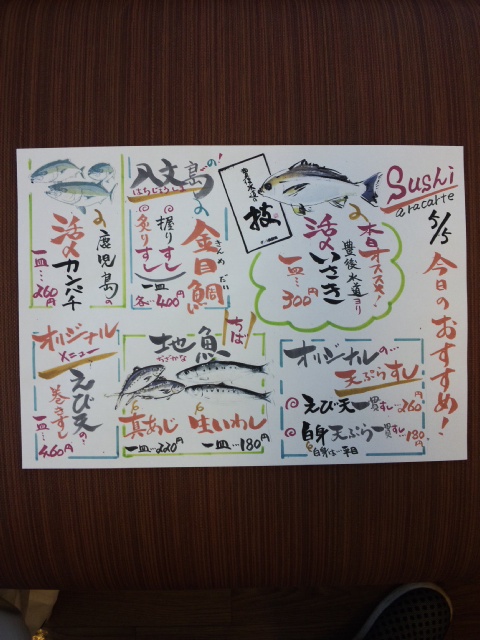 Sushi
a racarte
5/5
今日のおすすめ！
本日オススメ！
豊後水道ヨリ
活〆いさき
一皿…300円
技
八丈島の！
はちじょうじま
金目鯛
きんめだい
握りすし
炙りすし
一皿 各…400円
鹿児島の
活〆カンパチ
一皿…260円
オリジナルの…
天ぷらすし
えび天一貫すし…260円
白身天ぷら一貫すし…180円
白身は…平目
ちば！
地魚
ぢざかな
生いわし
一皿…180円
真あじ
一皿…220円
オリジナル
メニュー
えび天の！
巻きすし
一皿…460円